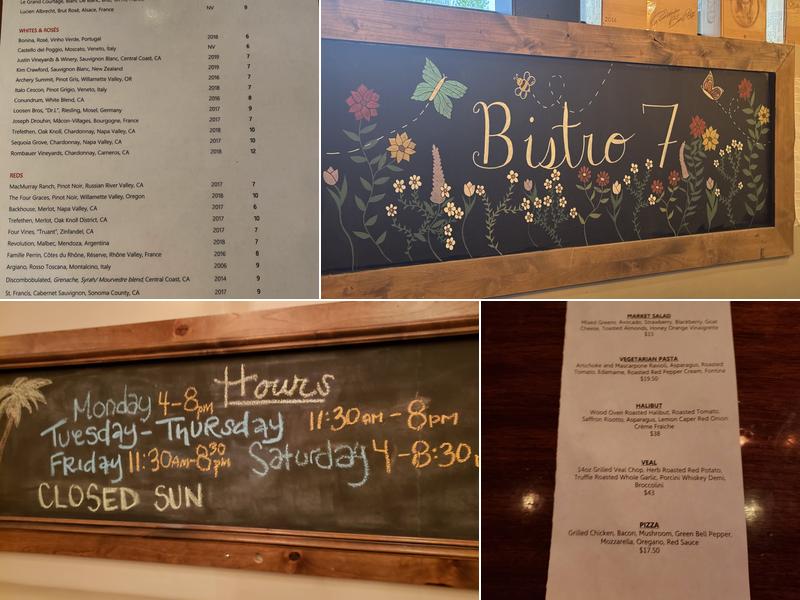 Le Grand Courtage, Blanc De Blanc, Brut,
Lucien Albrecht, Brut Rosé, Alsace, France NV 9
WHITES & ROSÉS
Bonina, Rosé, Vinho Verde, Portugal 2018 6
Castello del Poggio, Moscato, Veneto, Italy NV 6
Justin Vineyards & Winery, Sauvignon Blanc, Central Coast, CA 2019 7
Kim Crawford, Sauvignon Blanc, New Zealand 2019 7
Archery Summit, Pinot Gris, Willamette Valley, OR 2016 7
Italo Cescon, Pinot Grigio, Veneto, Italy 2018 7
Conundrum, White Blend, CA 2016 8
Loosen Bros, "Dr.L", Riesling, Mosel, Germany 2017 9
Joseph Drouhin, Mâcon-Villages, Bourgogne, France 2017 7
Trefethen, Oak Knoll, Chardonnay, Napa Valley, CA 2018 10
Sequoia Grove, Chardonnay, Napa Valley, CA 2017 10
Rombauer Vineyards, Chardonnay, Carneros, CA 2018 12
REDS
MacMurray Ranch, Pinot Noir, Russian River Valley, CA 2017 7
The Four Graces, Pinot Noir, Willamette Valley, Oregon 2018 10
Backhouse, Merlot, Napa Valley, CA 2017 6
Trefethen, Merlot, Oak Knoll District, CA 2017 10
Four Vines, "Truant", Zinfandel, CA 2017 7
Revolution, Malbec, Mendoza, Argentina 2018 7
Famille Perrin, Côtes du Rhône, Réserve, Rhône Valley, France 2016 8
Argiano, Rosso Toscana, Montalcino, Italy 2006 9
Discombobulated, Grenache, Syrah/ Mourvedre blend, Central Coast, CA 2014 9
St. Francis, Cabernet Sauvignon, Sonoma County, CA 2017 9
2014
Bistro 7
Hours
Monday 4-8pm
Tuesday-Thursday 11:30am-8pm
Friday 11:30am-8:30pm Saturday 4-8:30
CLOSED SUN
MARKET SALAD
Mixed Greens, Avocado, Strawberry, Blackberry, Goat
Cheese, Toasted Almonds, Honey Orange Vinaigrette
$15
VEGETARIAN PASTA
Artichoke and Mascarpone Ravioli, Asparagus, Roasted
Tomato, Edamame, Roasted Red Pepper Cream, Fontina
$19.50
HALIBUT
Wood Oven Roasted Halibut, Roasted Tomato,
Saffron Risotto, Asparagus, Lemon Caper Red Onion
Crème Fraiche
$38
VEAL
14oz Grilled Veal Chop, Herb Roasted Red Potato,
Truffle Roasted Whole Garlic, Porcini Whiskey Demi,
Broccolini
$43
PIZZA
Grilled Chicken, Bacon, Mushroom, Green Bell Pepper,
Mozzarella, Oregano, Red Sauce
$17.50